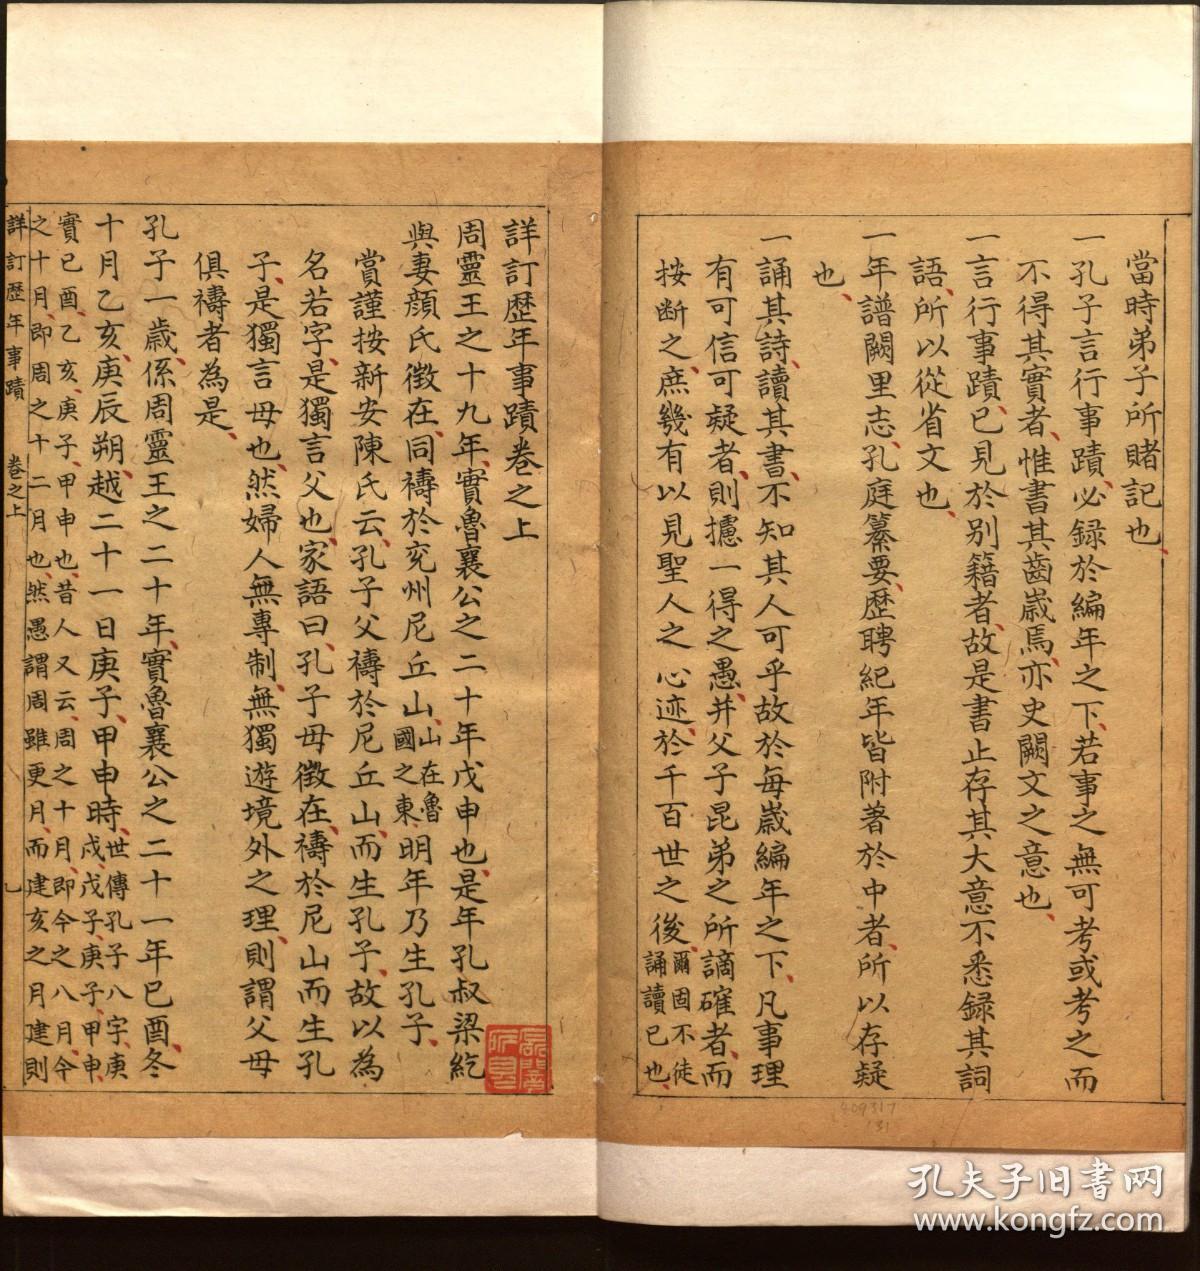 當時弟子所賭記也、
一孔子言行事蹟、必録於編年之下、若事之無可考或考之而
不得其實者、惟書其齒嵗焉、亦史闕文之意也、
一言行事蹟、已見於别籍者、故是書止存其大意不悉録其詞
語、所以從省文也、
一年譜闕里志、孔庭纂要、歴聘紀年皆附著於中者、所以存疑
也、
一誦其詩、讀其書、不知其人可乎故於每嵗編年之下、凡事理
有可信可疑者、則攄一得之愚、并父子昆弟之所謫確者、而
按断之、庶幾有以見聖人之心迹、於千百世之後、爾固不徒誦讀已也、
詳訂歴年事蹟卷之上
周靈王之十九年、實魯襄公之二十年戊申也、是年孔叔梁紇
與妻顔氏徵在、同禱於兖州尼丘山、山在魯國之東、明年乃生孔子、
賞謹按新安陳氏云、孔子父禱於尼丘山、而生孔子、故以為
名若字、是獨言父也、家語曰、孔子母徵在、禱於尼山而生孔
子、是獨言母也、然婦人無專制、無獨遊境外之理、則謂父母
俱禱者為是、
孔子一歲、係周靈王之二十年、實魯襄公之二十一年已酉、冬
十月乙亥、庚辰朔、越二十一日庚子、甲申時、世傳孔子八字、庚戌、戊子、庚子、甲申、
實已酉、乙亥、庚子、甲申也、昔人又云、周之十月、即今之八月、今
之十月、即周之十二月也、然愚謂周雖更月、而建亥之月建則
詳訂歷年事蹟 卷之上
孔夫子旧书网
www.kongfz.com